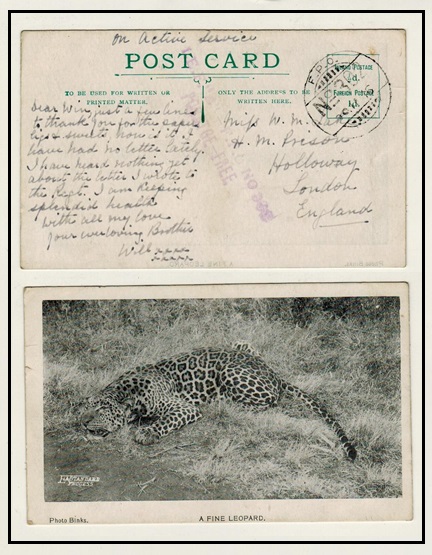 On Active Service
POST CARD
TO BE USED FOR WRITTEN OR
PRINTED MATTER.
ONLY THE ADDRESS TO BE
WRITTEN HERE.
INLAND POSTAGE
½d.
FOREIGN POSTAGE
1d.
F.P.O.
Dear Win, just a few lines
to thank you for the
& sweets, now is it I
have had no letter lately
I have heard nothing yet
about the letter I wrote to
the Regt. I am keeping
splendid health
with all my love
Your ever loving Brother
Will xxxxx
Miss W. M.
H. M. Prison
Holloway
London
England
FREE
A FINE LEOPARD.
Photo Binks.
PROCESS